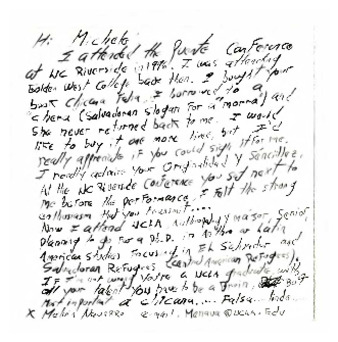 Hi Michele
I attended the Puente Conference
at UC Riverside in 1998. I was attending
Golden West College back then. I bought your
book Chicana Falsa. I borrowed to a
chera (Salvadoran slogan for a "morra") and
she never returned back to me. I would
like to buy it one more time, but I'd
really appreciate if you could sign it for me.
I really admire your Originalidad y Sencillez.
At the UC Riverside Conference you sat next to
me before the performance. I felt the strong
enthusiasm that you transmit...
Now I attend UCLA Anthropology major, Senior
planning to go for a Ph.D. in Anthro or Latin
American Studies focusing in El Salvador and
Salvadoran Refugees (Central American Refugees).
If I'm not wrong you're a UCLA graduate, with
all your talent you have to be a Bruin, But
most important a chicana... Falsa... linda...
x Navarro email. @ucla.edu